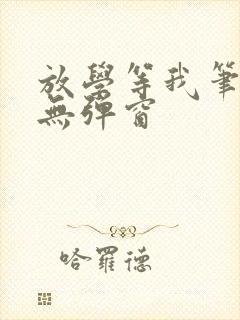 放學等我筆
無彈窗
哈羅德